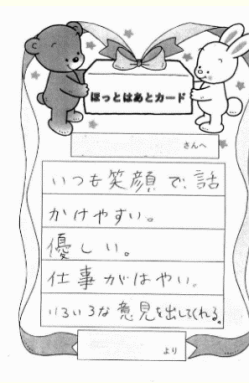 ほっとはあとカード
さんへ
いつも笑顔で、話
かけやすい。
優しい。
仕事がはやい。
いろいろな意見を出してくれる。
より